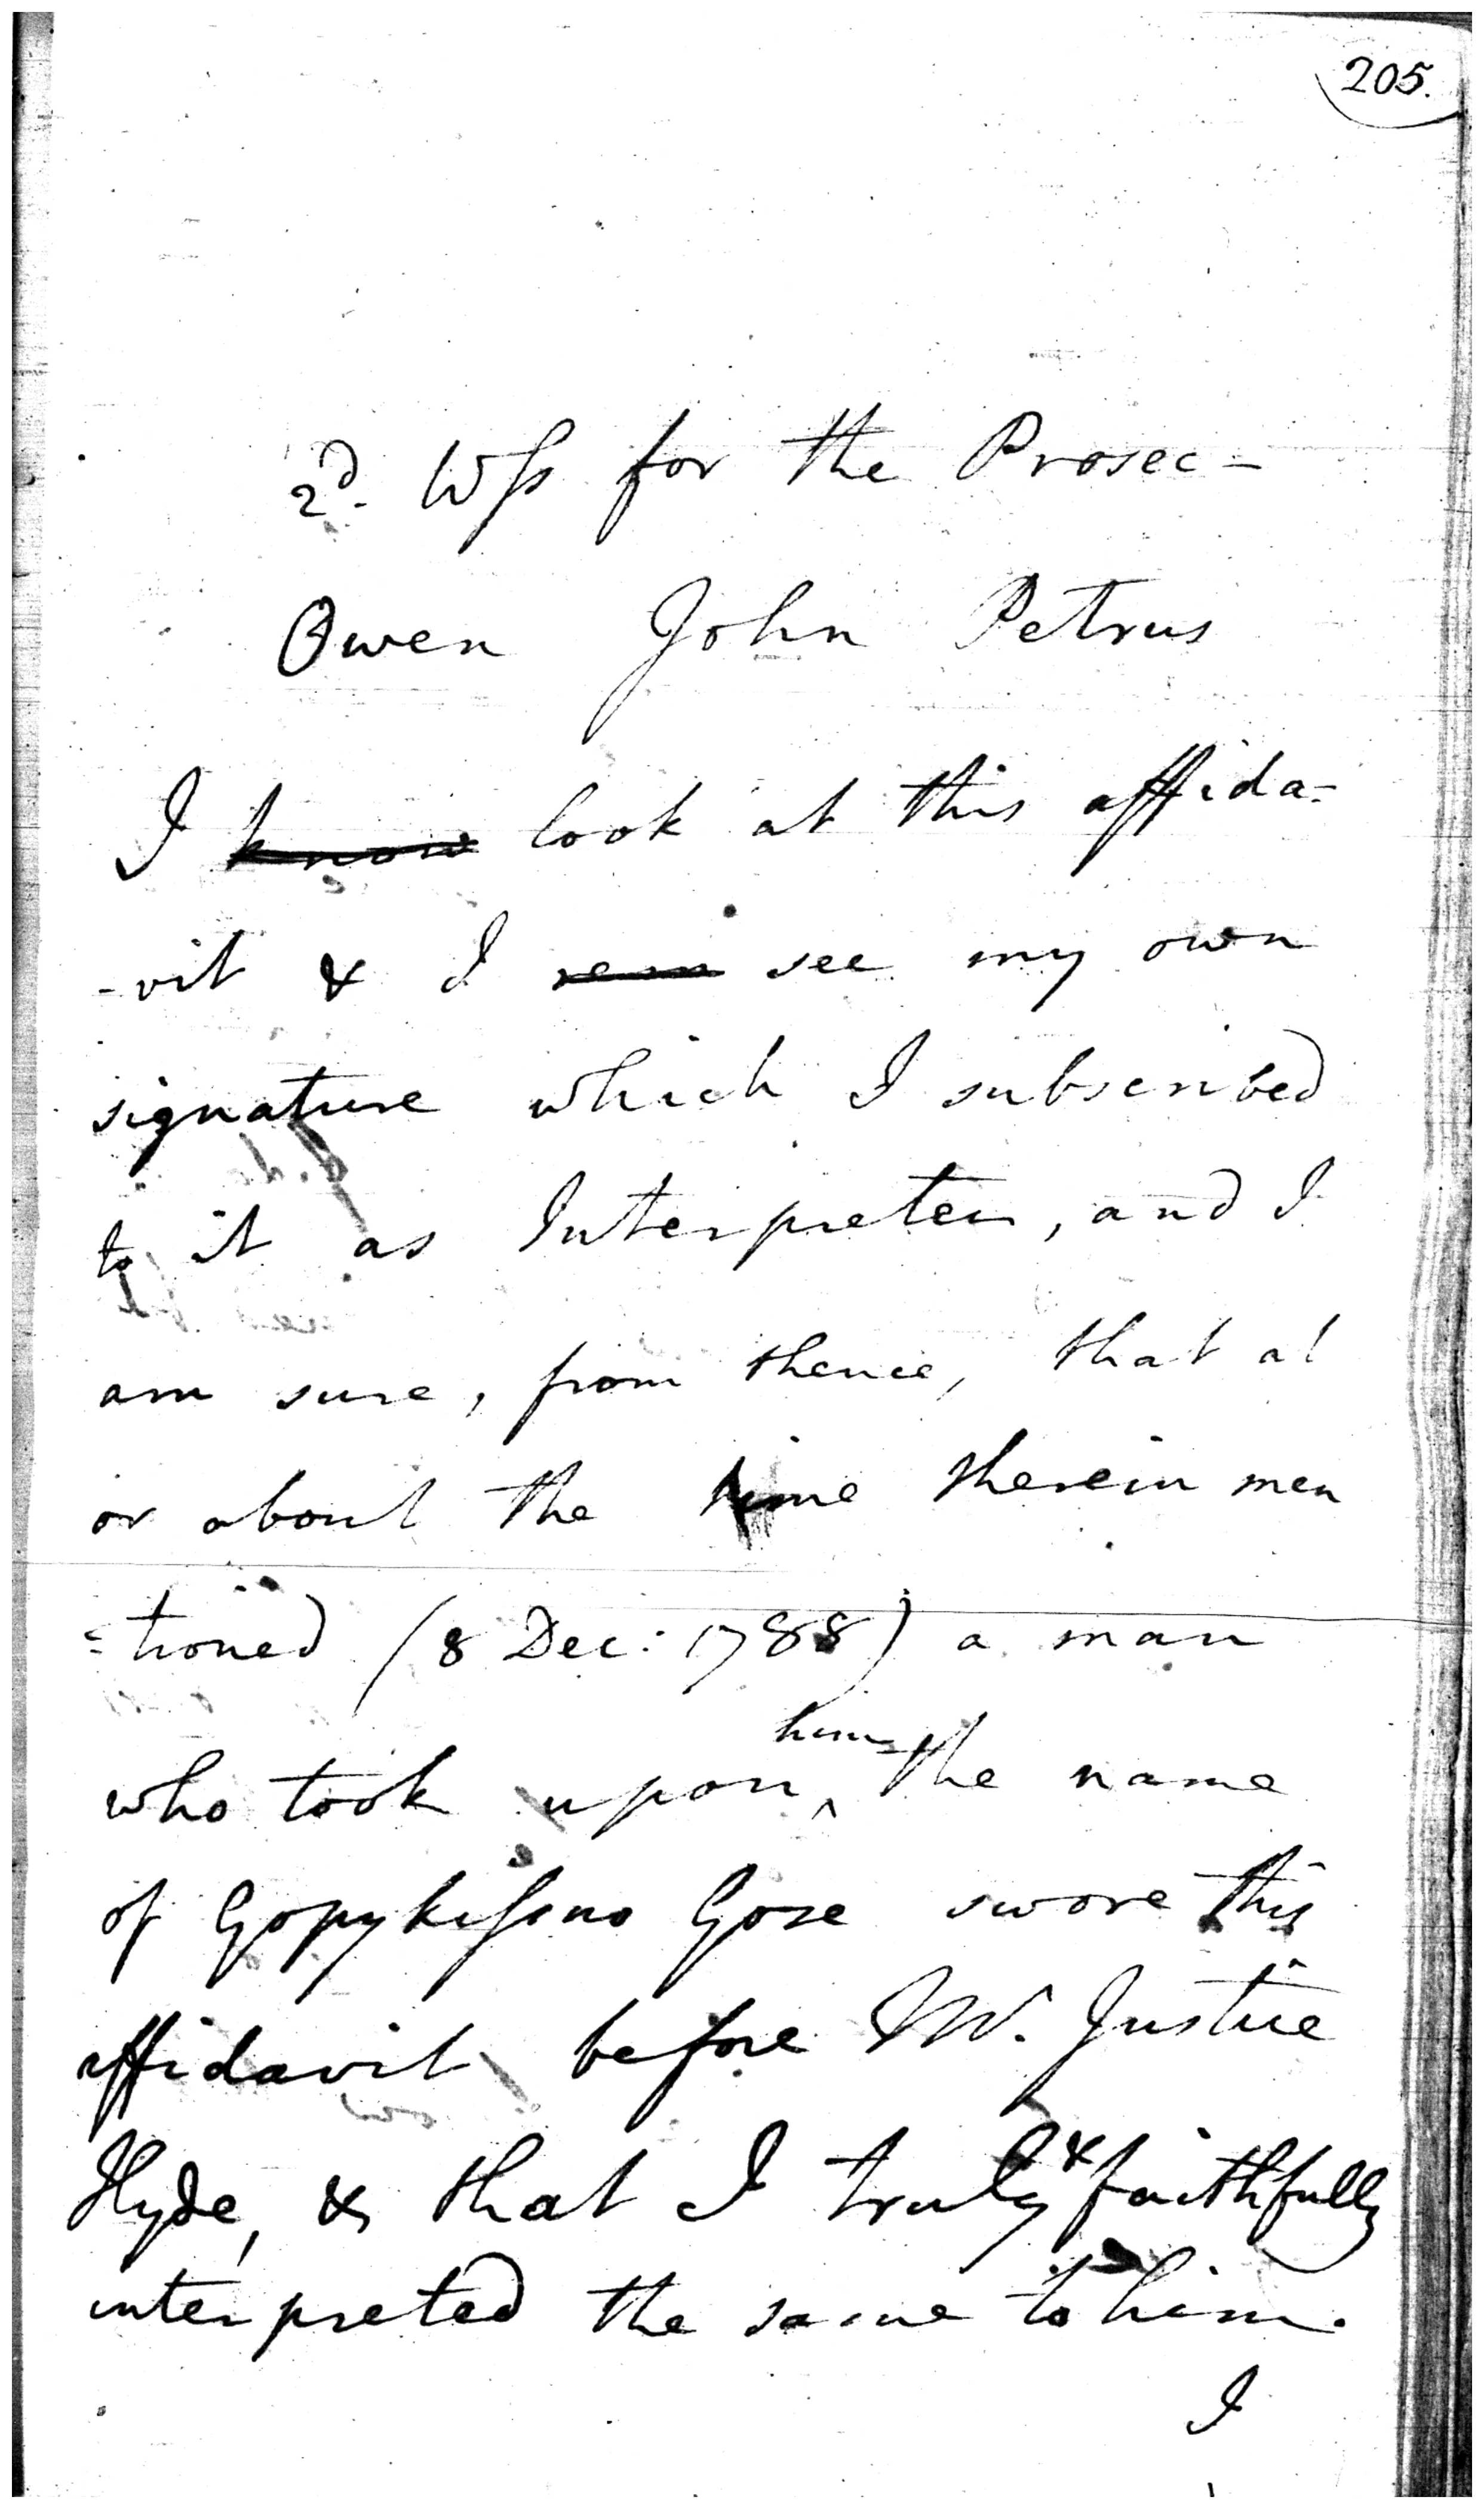 205.
2d. Wss for the Prosec-
Owen John Petrus
I know look at this affida=
-vit & I rem see my own
signature which I subscribed
to it as Interpreter, and I
am sure, from thence, that at
or about the time therein men
=tioned (8 Dec: 1788) a man
who took upon him the name
of Gopykissno Gose swore this
affidavit before Mr. Justice
Hyde, & that I truly & faithfully
interpreted the same to him.
I